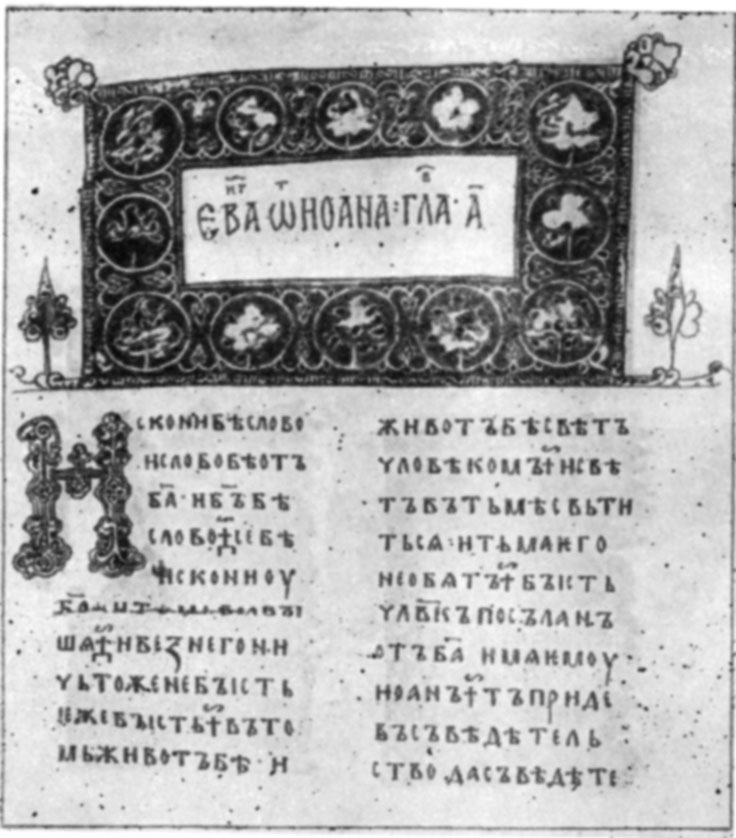 ЄВА҃ ѾИОАНА·ГЛА·А҃
Искониб꙯ѣслово
ислобобѣотъ
б҃а·иб҃ъбѣ
слово☦себѣ
искониоу
шѧ☦ибезнегони
чьтоженебъість
ежебъість☦въто
мьживотъбѣ·и
животъбѣсвѣтъ
чловѣкомъ☦исвѣ
тъвътьмѣсвьти
тьсѧ·итьмаего
необѧтъ☦бъість
чл҃вкъпосъланъ
отъб҃а имѧѥмоу
иоанъ☦тъприде
въсъвѣдѣтель
ство дасъвѣдѣте